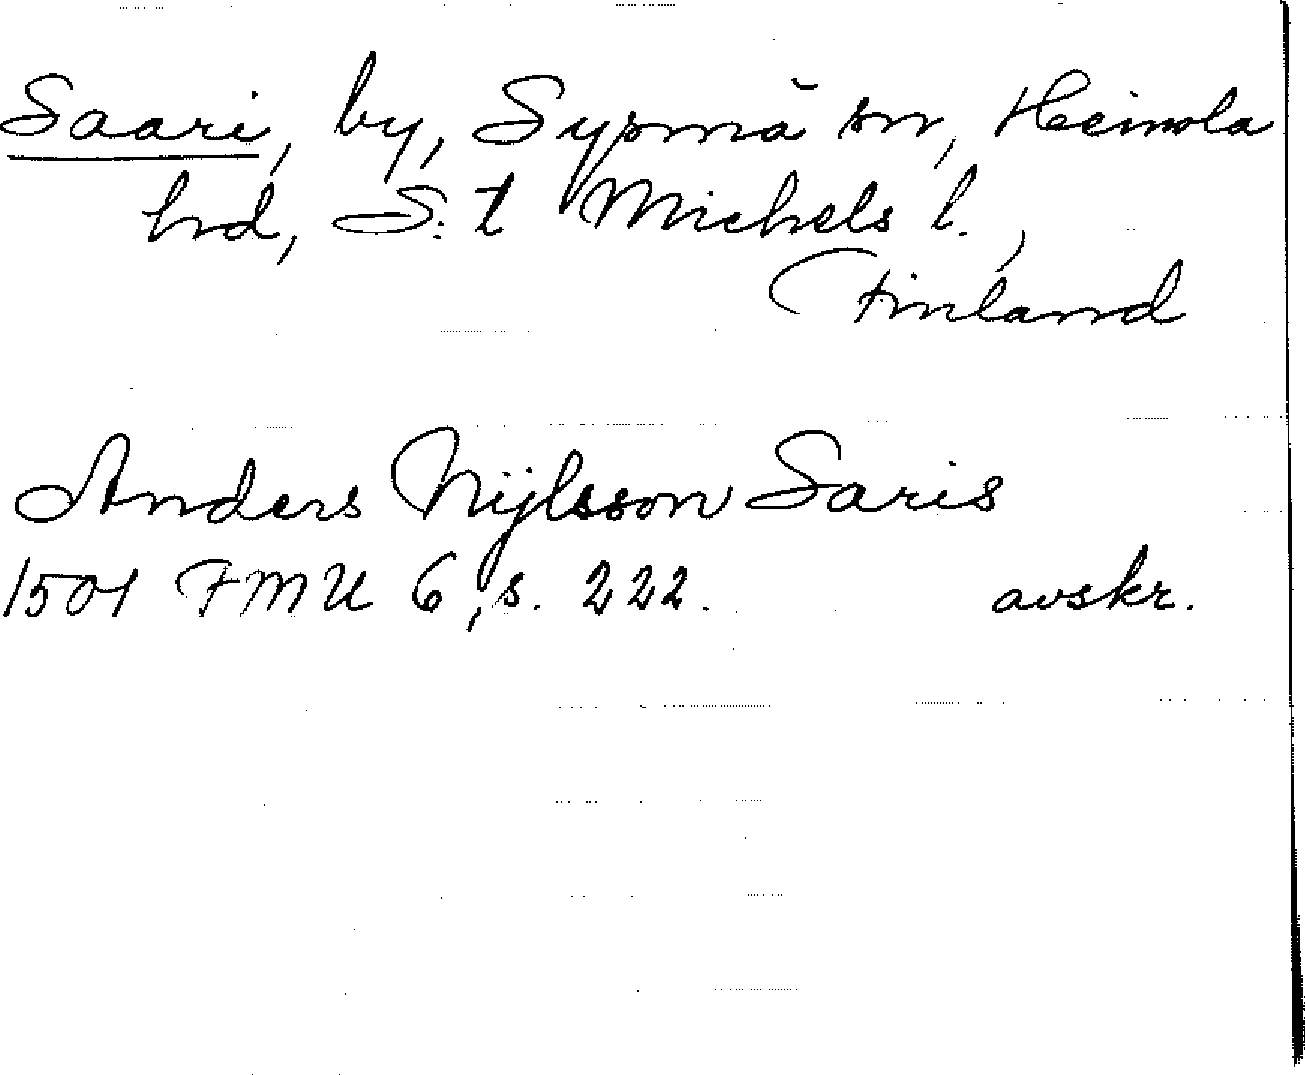 Saari, by, Sysmä sn, Heinola
hd, S:t Michels l.,
Finland
Anders Nijlsson Saris
1501 FMU 6, s. 222. avskr.